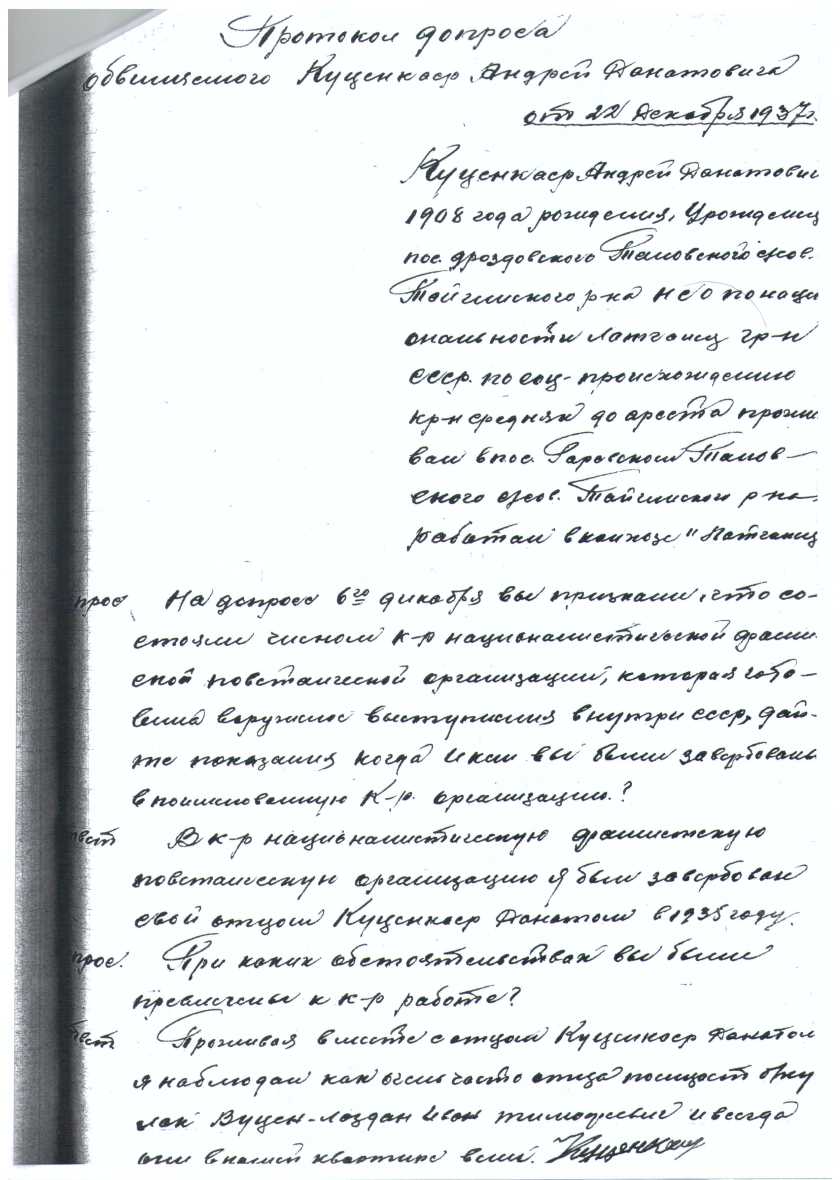 Протокол допроса
обвиняемого Куценкаер Андрей Данатовича
от 22 Декабря 1937 г.
Куценкаер Андрей Данатович
1908 года рождения, Урожденец
пос. Дроздовского Таловского с/сов.
Тайгинского р-на НСО по наци
ональности Латгалец гр-н
СССР. по соц-происхождению
кр-н средняк до ареста прожи
вал в пос. Таловского
с/сов. Тайгинского р-на.
работал в колхозе "Латгалец
прос На допросе 6го дикабря вы признали, что со-
стояли членом к-р националистической фаши
ской повстанческой организации, которая гото-
вила воружное выступления внутри СССР, дай-
те показания когда и кем вы были завербованы
в поименованную К-р. организацию?
вет В к-р националистическую фашистскую
повстанческую организацию я был завербован
свой отцом Куценкаер Данатом в 1935 году.
прос. При каких обстоятельствах вы были
превлечены к к-р работе?
твет Проживая вместе с отцом Куценкаер Данатом
я наблюдал как очень часто отца посещает б/ку
лак Вуцен-Лоздан Иван Тимофеевич и всегда
они в нашей квартире вели. Куценкаер